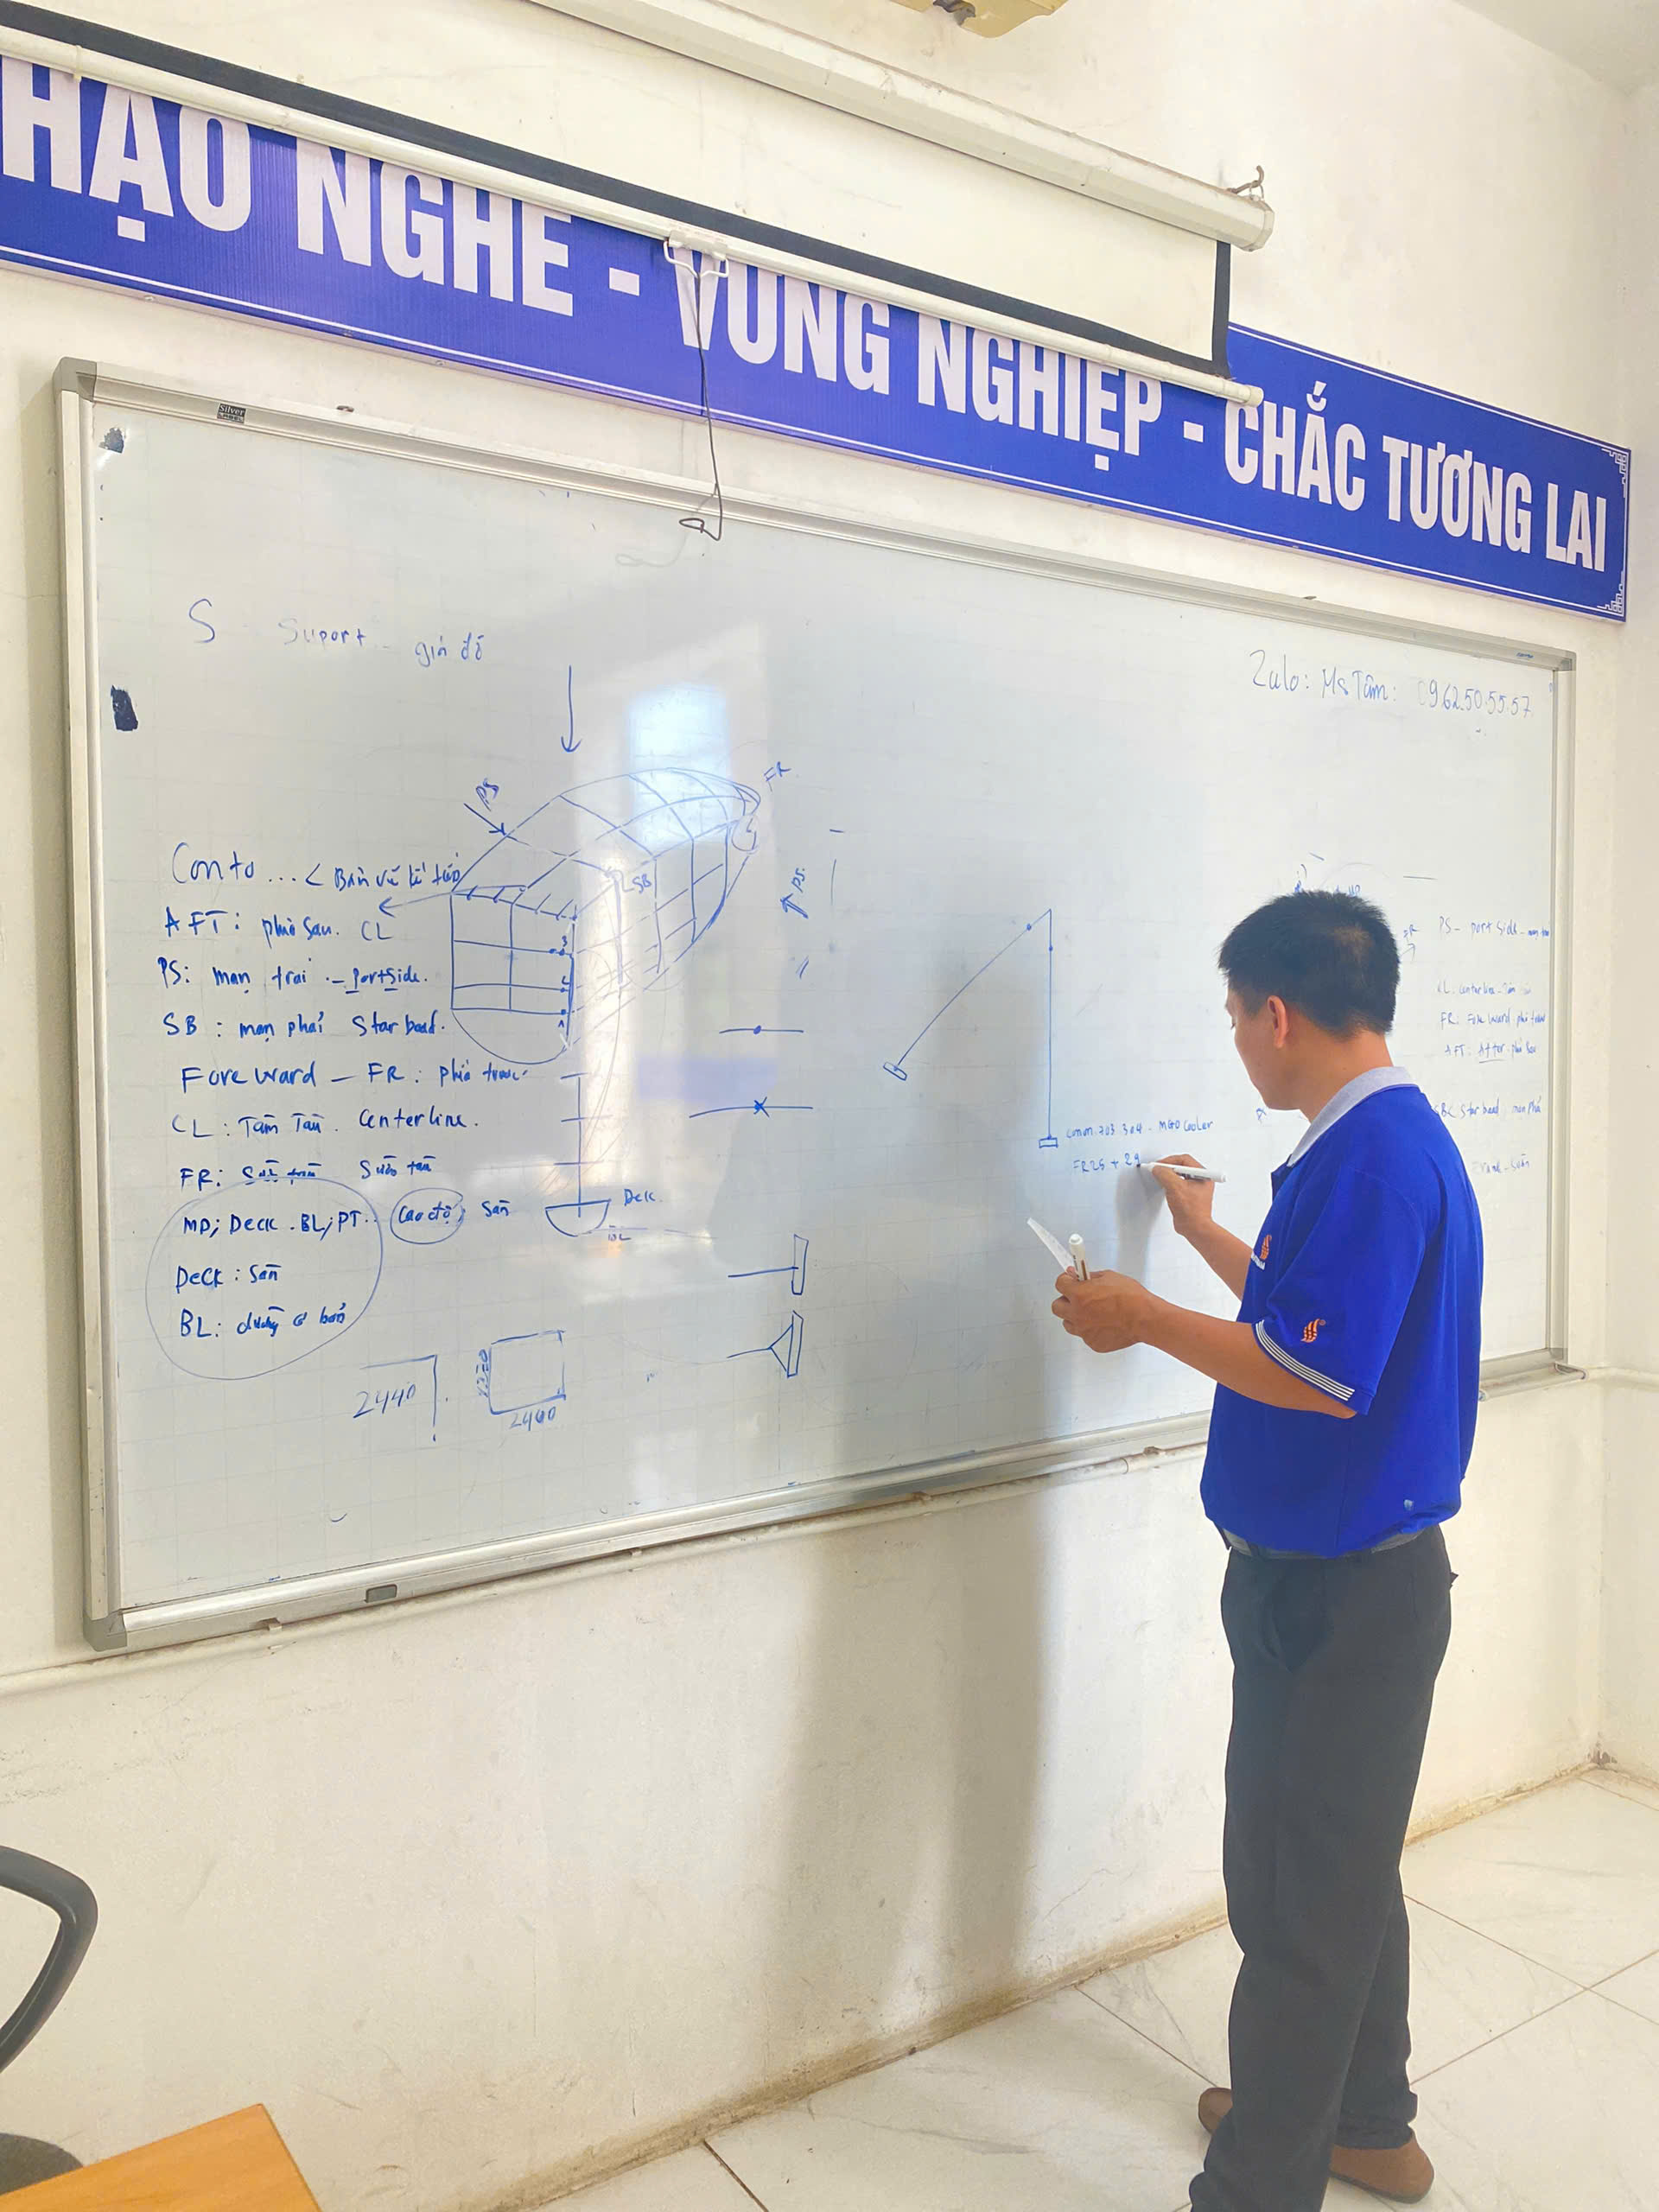 HẠO NGHỀ - VỮNG NGHIỆP - CHẮC TƯƠNG LAI
Silver
S Suport - giá đỡ
Zalo: Ms Tâm: 0962.50.55.57
PS
FR
SB
PS
Conto... < Bản vẽ
AFT: phía sau. CL
PS: mạn trái - Portside.
SB: mạn phải Starboad.
Foreward - FR: phía trước
CL: Tâm Tàu. Centerline.
FR: Sườn tàu
MD; Deck. BL; PT.. Cao độ; Sàn
Deck: Sàn
BL: đường cơ bản
Deck
BL
2440
1220
2440
703.304 - MGO Cooler
FR25 + 29
FR
PS - port side - mạn
CL - Center line - Tâm
FR: Foreward phía trước
AFT: After - phía sau
Starboad mạn phải